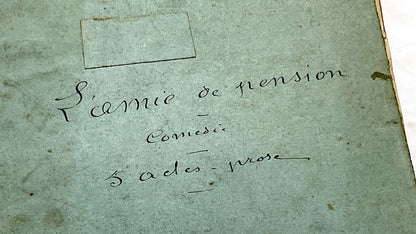 L'amie de pension
Comédie
5 actes - prose